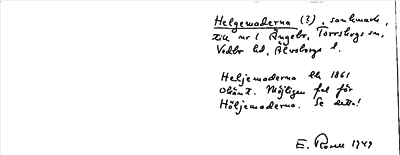 Helgemaderna (?), sankmark,
till nr 1 Ängebr, Torrskogs sn,
Vedbo hd, Älvsborgs l.
Heljemaderna Ek 1861
okänt. Möjligen fel för
Höljemaderna. Se detta!
E. Rosell 1949